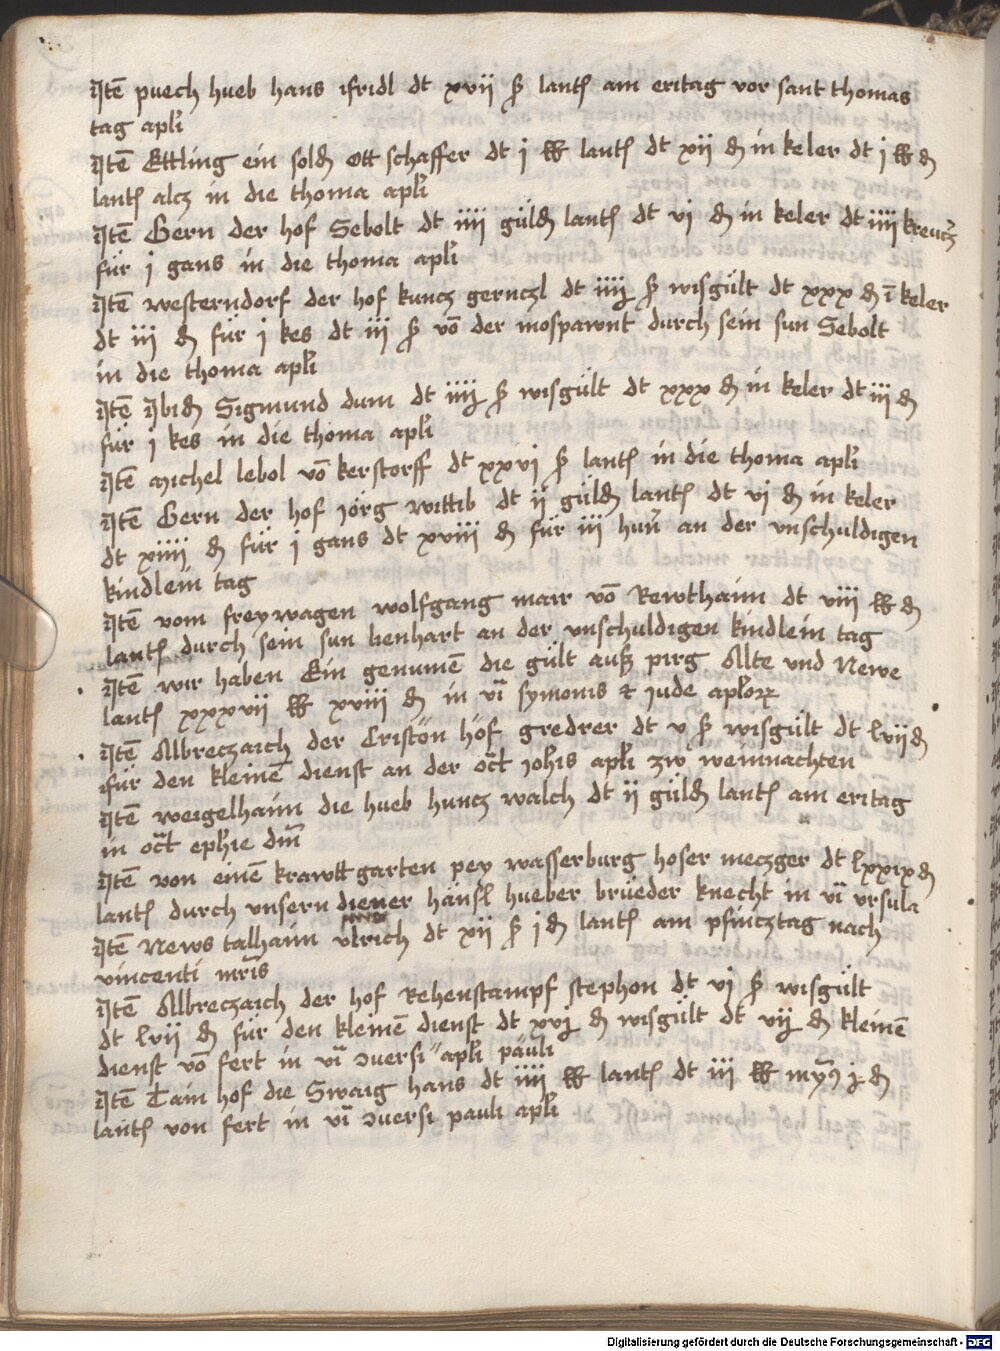 Itē puech hueb hans ifridl dt xvij ß lantß am eritag vor sant thomas
tag apl̄i
Itē Ettling ein sold̄ ott schaffer dt j ℔ lantß dt xij ₰ in keler dt j ℔ ₰
lantß alcz in die thoma apl̄i
Itē Gern der hof Sebolt dt iiij güld̄ lantß dt vj ₰ in keler dt iiij kreucz̄
für j gans in die thoma apl̄i
Itē westerndorf der hof kuncz gernczl dt iiij ß wisgült dt xxx ₰ ī keler
dt iij ₰ für j kes dt iij ß vō der mospawnt durch sein sun Sebolt
in die thoma apl̄i
Itē Ibid̄ Sigmund dum dt iiij ß wisgült dt xxx ₰ in keler dt iij ₰
für j kes in die thoma apl̄i
Itē michel lebol vō kerstorff dt xxvj ß lantß in die thoma apl̄i
Itē Gern der hof jörg wittib dt ij güld̄ lantß dt vj ₰ in keler
dt xiiij ₰ für j gans dt xviij ₰ für iij hun̄ an der vnschuldigen
kindlein tag
Itē vom freywagen wolfgang mair vō Rewthaim dt viij ℔ ₰
lantß durch sein sun lienhart an der vnschuldigen kindlein tag
Itē wir haben Ein genumē die gült auß pirg Allte vnd Newe
lantß xxxvij ℔ xviij ₰ in vī symonis et jude apl̄oꝝ
Itē Albreczaich der Cristön hof gredrer dt v ß wisgült dt lvij ₰
für den kleinē dienst an der oc̄t joh̄is apl̄i zw weinnachten
Itē weigelhaim die hueb huncz walch dt ij güld̄ lantß am eritag
in oc̄t eph̄ie dm̄
Itē von einē krawtt garten pey wasserburg hoser meczger dt lxxix ₰
lantß durch vnsern diener hänsl hueber brüeder knecht in vī vrsula
Itē News talhaim vlrich dt xij ß j ₰ lantß am pfincztag nach
vincenti mr̄is
Itē Albreczaich der hof Rehenstampf stephon dt vj ß wisgült
dt lvij ₰ für den kleinē dienst dt xvj ₰ wisgült dt vij ₰ kleinē
dienst vō fert in vī ꝯuersi apl̄i pauli
Itē Tain hof die Swaig hans dt iiij ℔ lantß dt iij ℔ ₰
lantß von fert in vī ꝯuersi pauli apl̄i
Digitalisierung gefördert durch die Deutsche Forschungsgemeinschaft - DFG